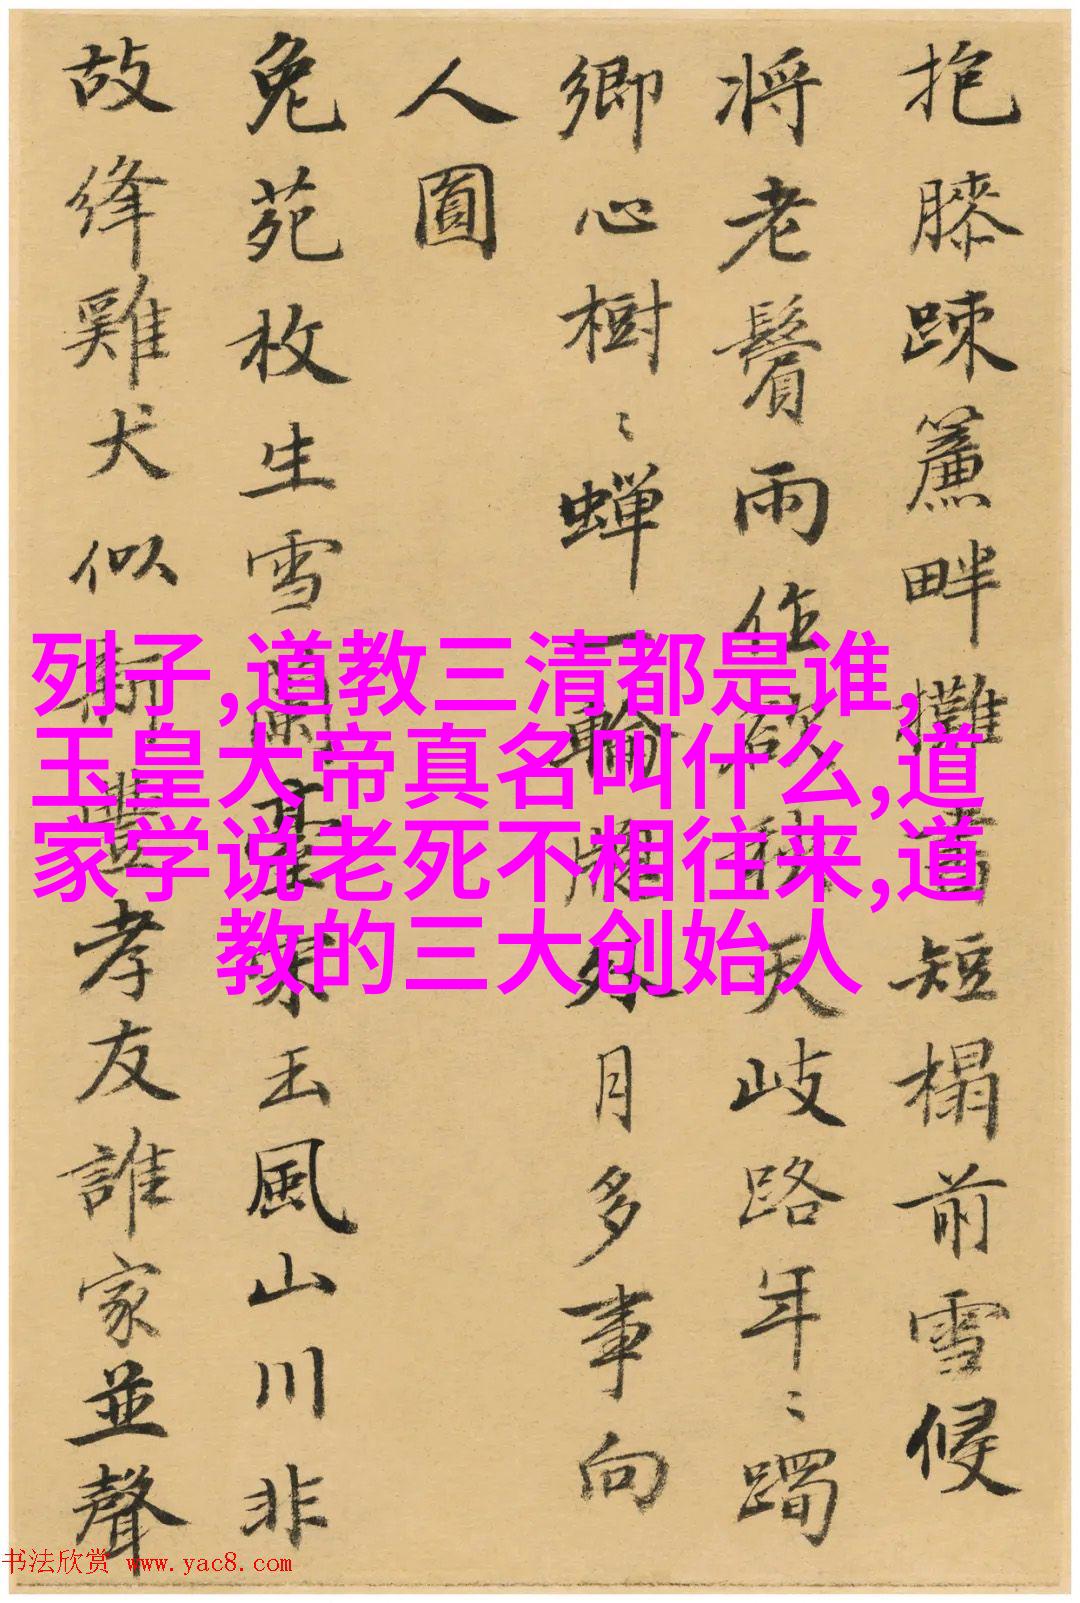 抱膝踈簾畔攤書短榻前雪候
将老鬢雨作欲秋天岐路年〻躅
鄉心樹〻蟬一輪月多事向
人圓
兔苑枚生雪蘭臺宋玉風山川非
故絳雞犬似新豐孝友誰家並聲
列子,道教三清都是谁,
玉皇大帝真名叫什么,道
家学说老死不相往来,道
教的三大创始人
书法欣赏 www.yac8.com